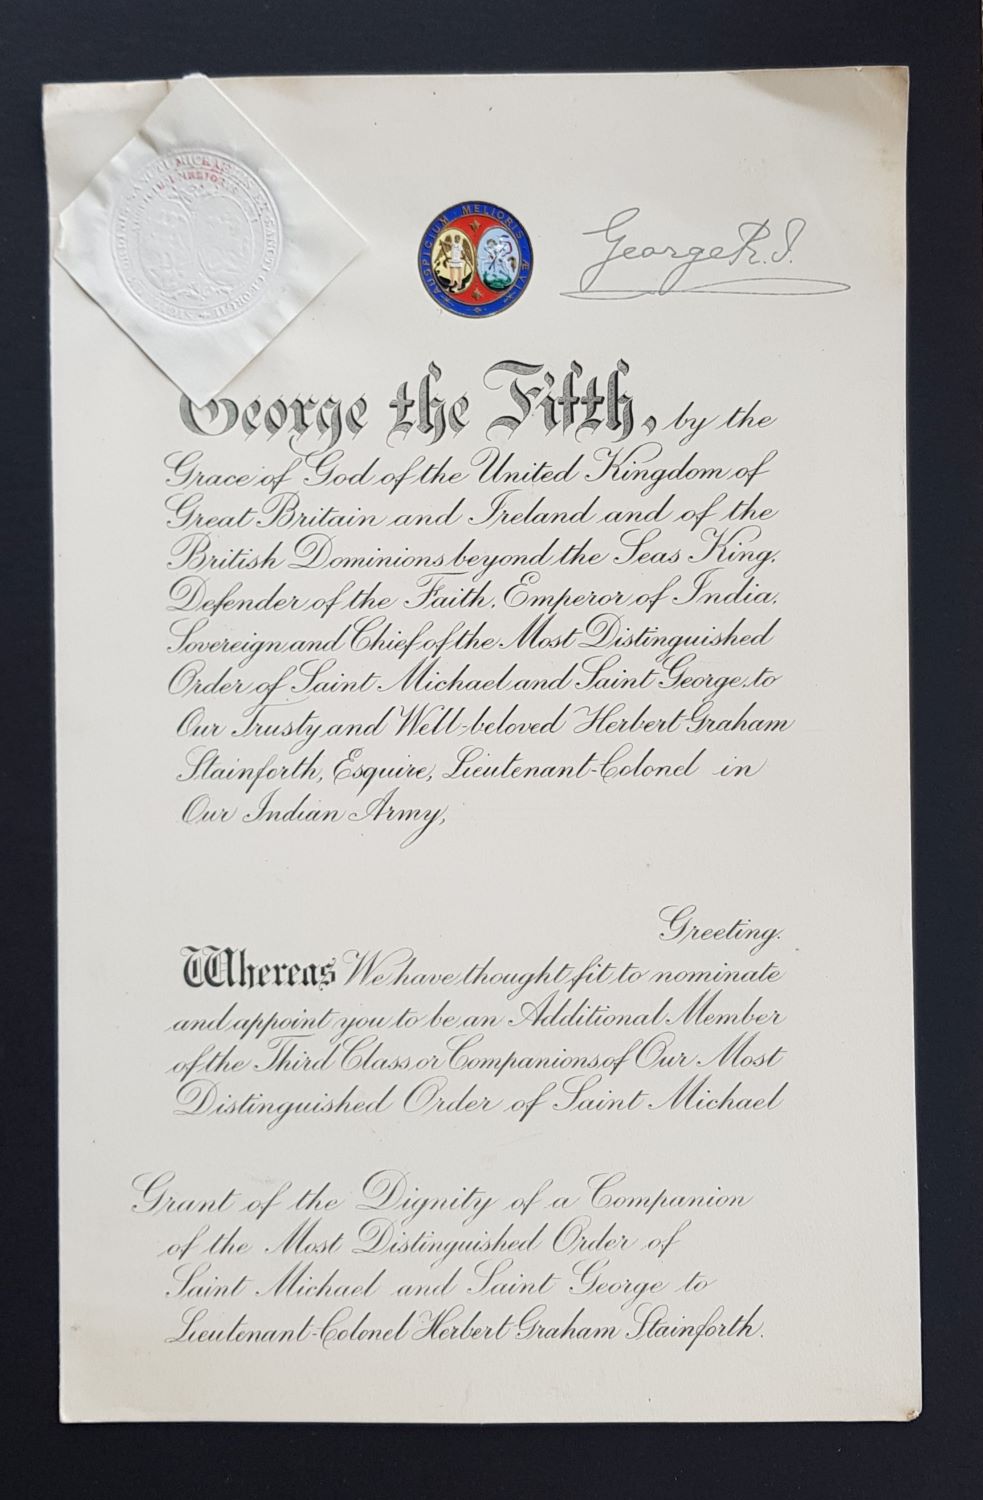 AUSPICIUM · MELIORIS · ÆVI
George R.I.
George the Fifth, by the
Grace of God of the United Kingdom of
Great Britain and Ireland and of the
British Dominions beyond the Seas King,
Defender of the Faith, Emperor of India,
Sovereign and Chief of the Most Distinguished
Order of Saint Michael and Saint George, to
Our Trusty and Well-beloved Herbert Graham
Stainforth, Esquire, Lieutenant-Colonel in
Our Indian Army,
Greeting.
Whereas We have thought fit to nominate
and appoint you to be an Additional Member
of the Third Class or Companions of Our Most
Distinguished Order of Saint Michael
Grant of the Dignity of a Companion
of the Most Distinguished Order of
Saint Michael and Saint George to
Lieutenant-Colonel Herbert Graham Stainforth.